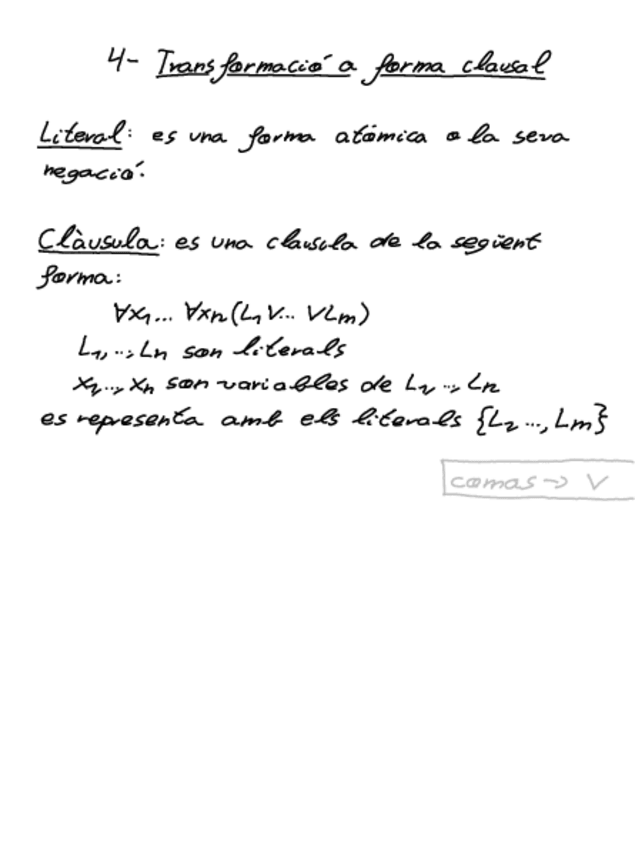 4- Transformació a forma clausal
Literal: es una forma atómica o la seva
negació.
Clàusula: es una clausula de la següent
forma:
∀x₁... ∀xn(L₁ V... VLm)
L₁, ..., Ln son literals
x₂..., xn son variables de L₂ ..., Ln
es representa amb els literals {L₂ ..., Lm}
comas -> V